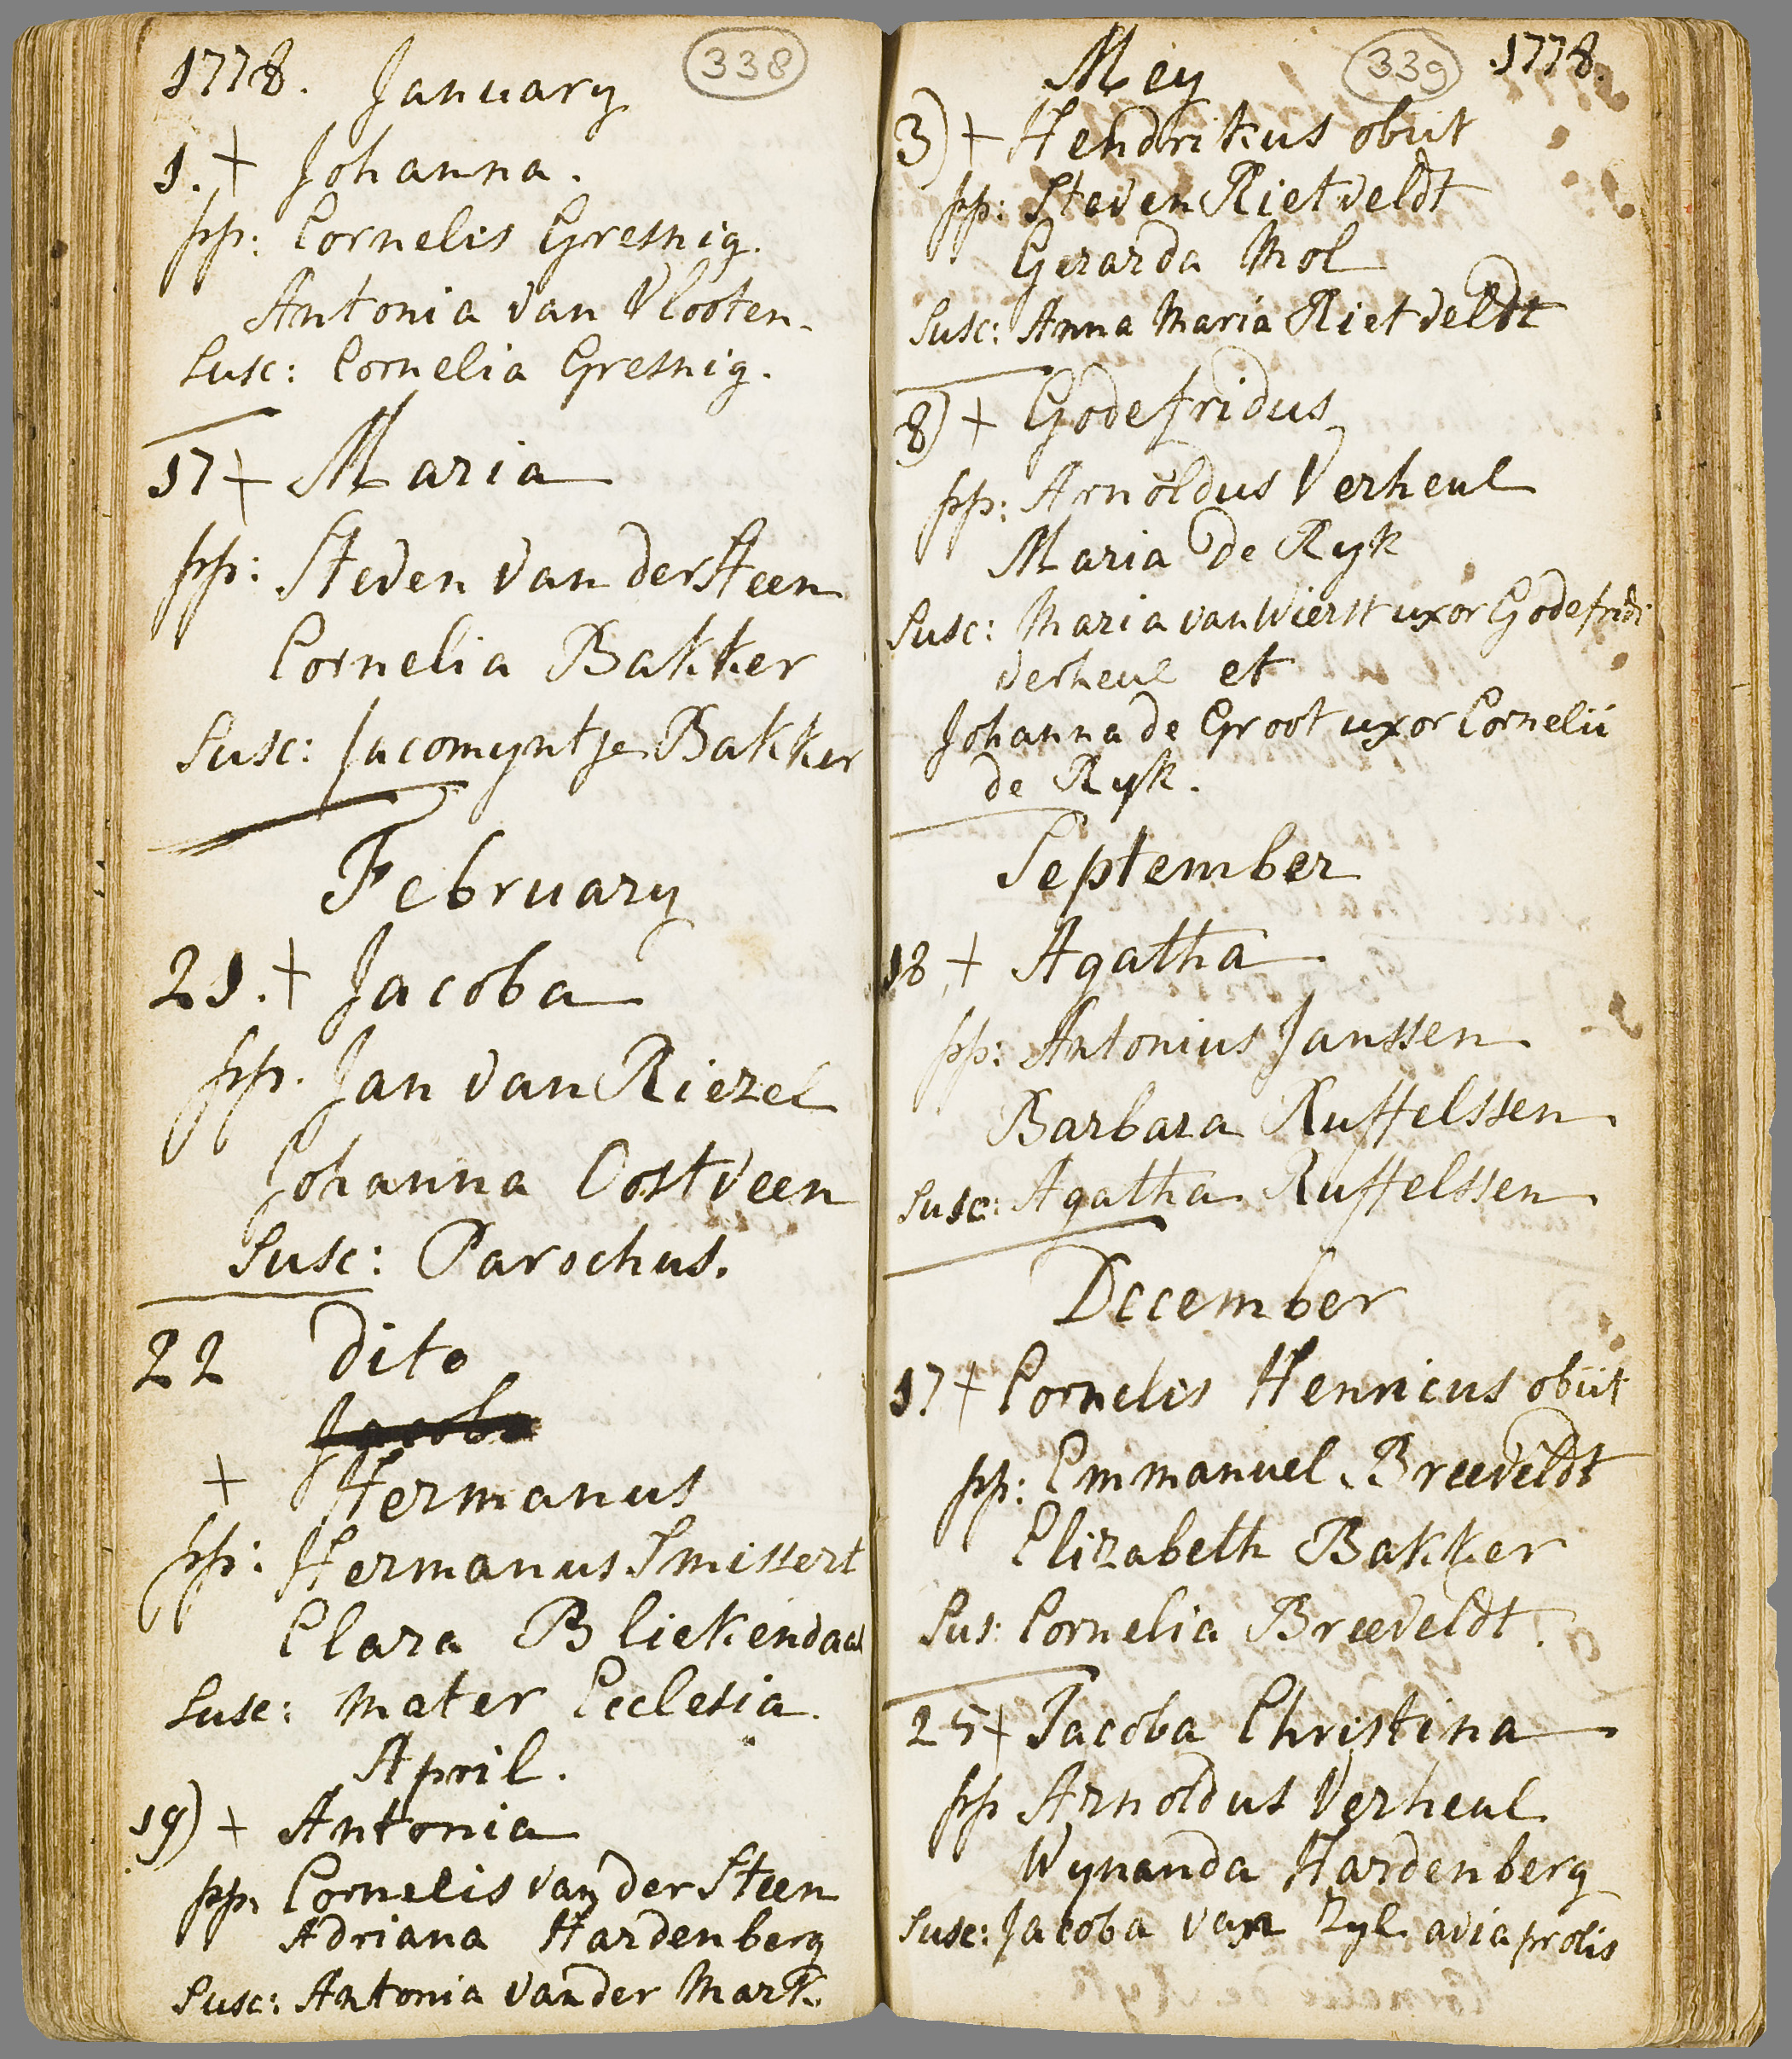 1778. January 338
1. + Johanna.
pp: Cornelis Gresnig.
Antonia van Vlooten.
Susc: Cornelia Gresnig.
17 + Maria
pp: Steven van der Steen
Cornelia Bakker
Susc: Jacomyntje Bakker
February
21. + Jacoba
pp. Jan van Riezel
Johanna Oostveen
Susc: Parochus.
22 dito
Jacoba
+ Hermanus
pp: Hermanus Smissert
Clara Bliekendaal
Susc: Mater Ecclesia.
April.
19) + Antonia
pp. Cornelis van der Steen
Adriana Hardenberg
Susc: Antonia van der Mark.
Mey 339 1778.
3) + Hendrikus obiit
pp: Steven Rietveldt
Gerarda Mol
Susc: Anna Maria Rietveldt
8) + Godefridus
pp: Arnoldus Verheul
Maria de Ryk
Susc: Maria van Wierst uxor Godefridi
Verheul et
Johanna de Groot uxor Cornelii
de Ryk.
September
18 + Agatha
pp: Antonius Janssen
Barbara Ruffelssen
Susc: Agatha Ruffelssen
December
17 + Cornelis Henricus obiit
pp: Emmanuel Breeveldt
Elizabeth Bakker
Sus: Cornelia Breeveldt.
25 + Jacoba Christina
pp Arnoldus Verheul
Wynanda Hardenberg
Susc: Jacoba van Zyl avia prolis